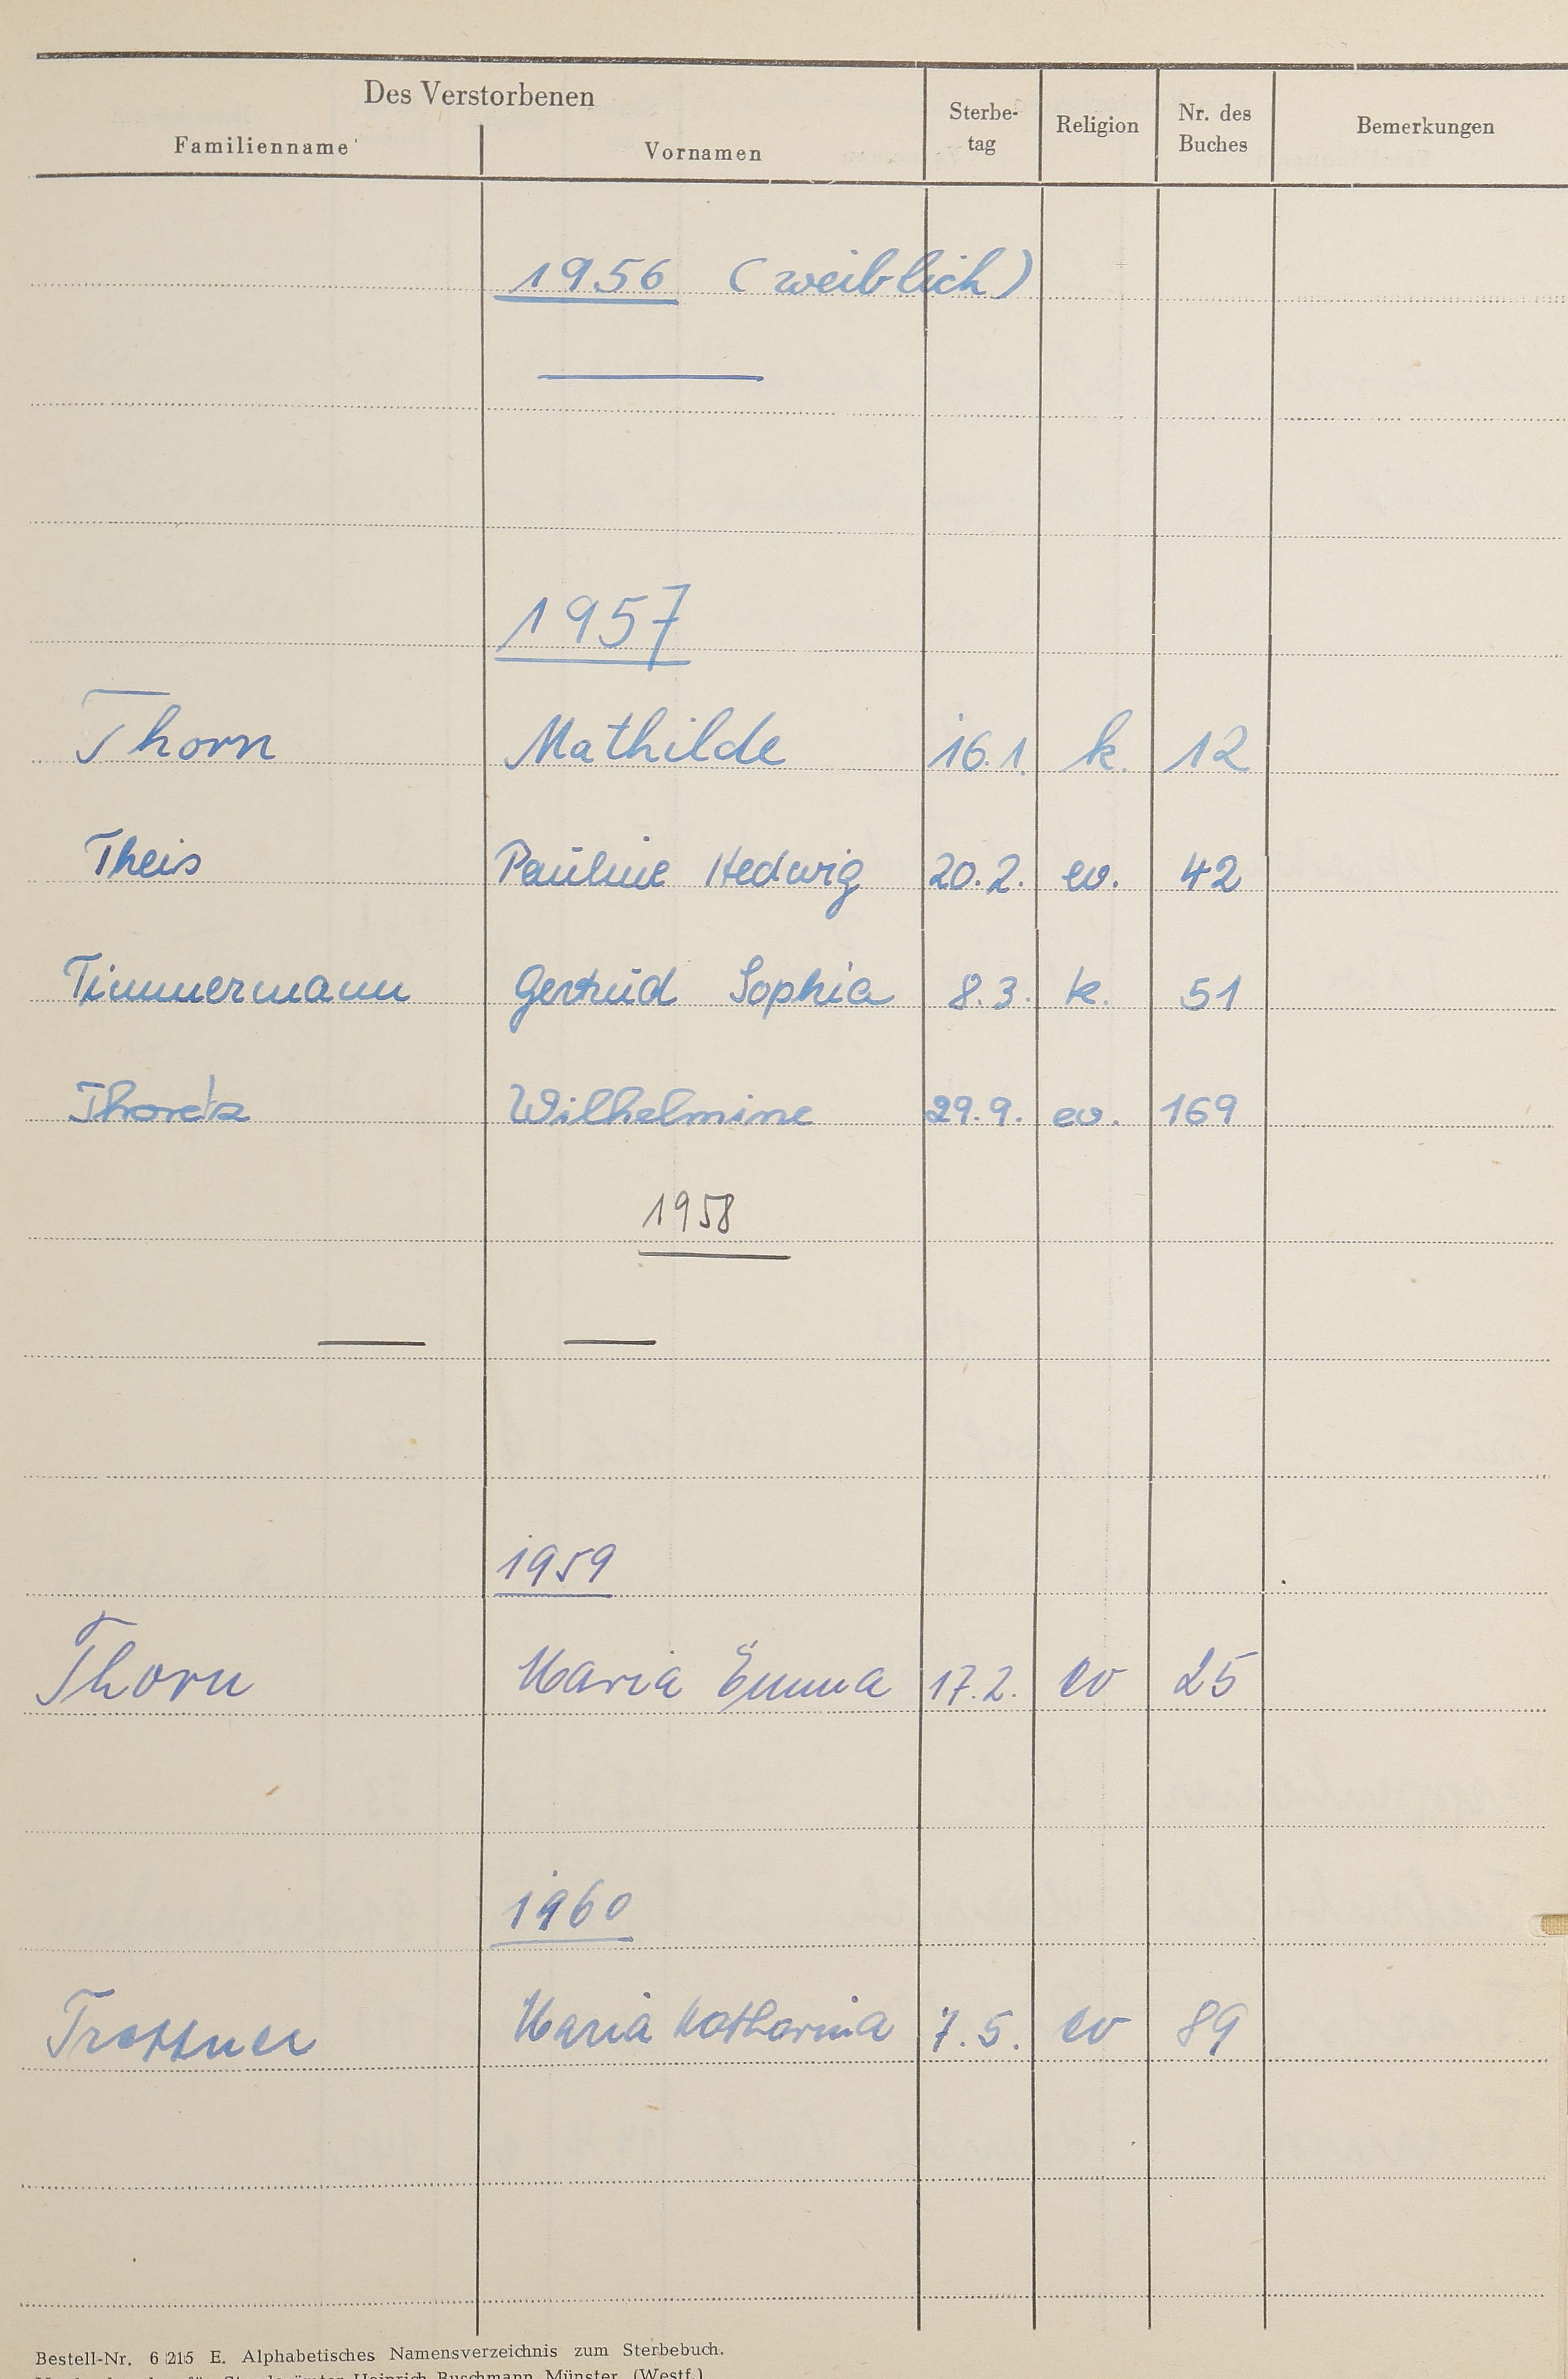 Des Verstorbenen
Familienname Vornamen Sterbe-tag Religion Nr. des Buches Bemerkungen
1956 (weiblich)
1957
Thorn Mathilde 16.1. k. 12
Theis Pauline Hedwig 20.2. ev. 42
Timmermann Gertrud Sophia 8.3. k. 51
Wilhelmine 29.9. ev. 169
1958
1959
Thorn Maria Emma 17.2. ev 25
1960
Maria Katharina 7.5. ev 89
Bestell-Nr. 6 215 E. Alphabetisches Namensverzeichnis zum Sterbebuch.
Heinrich Buschmann, Münster (Westf.)